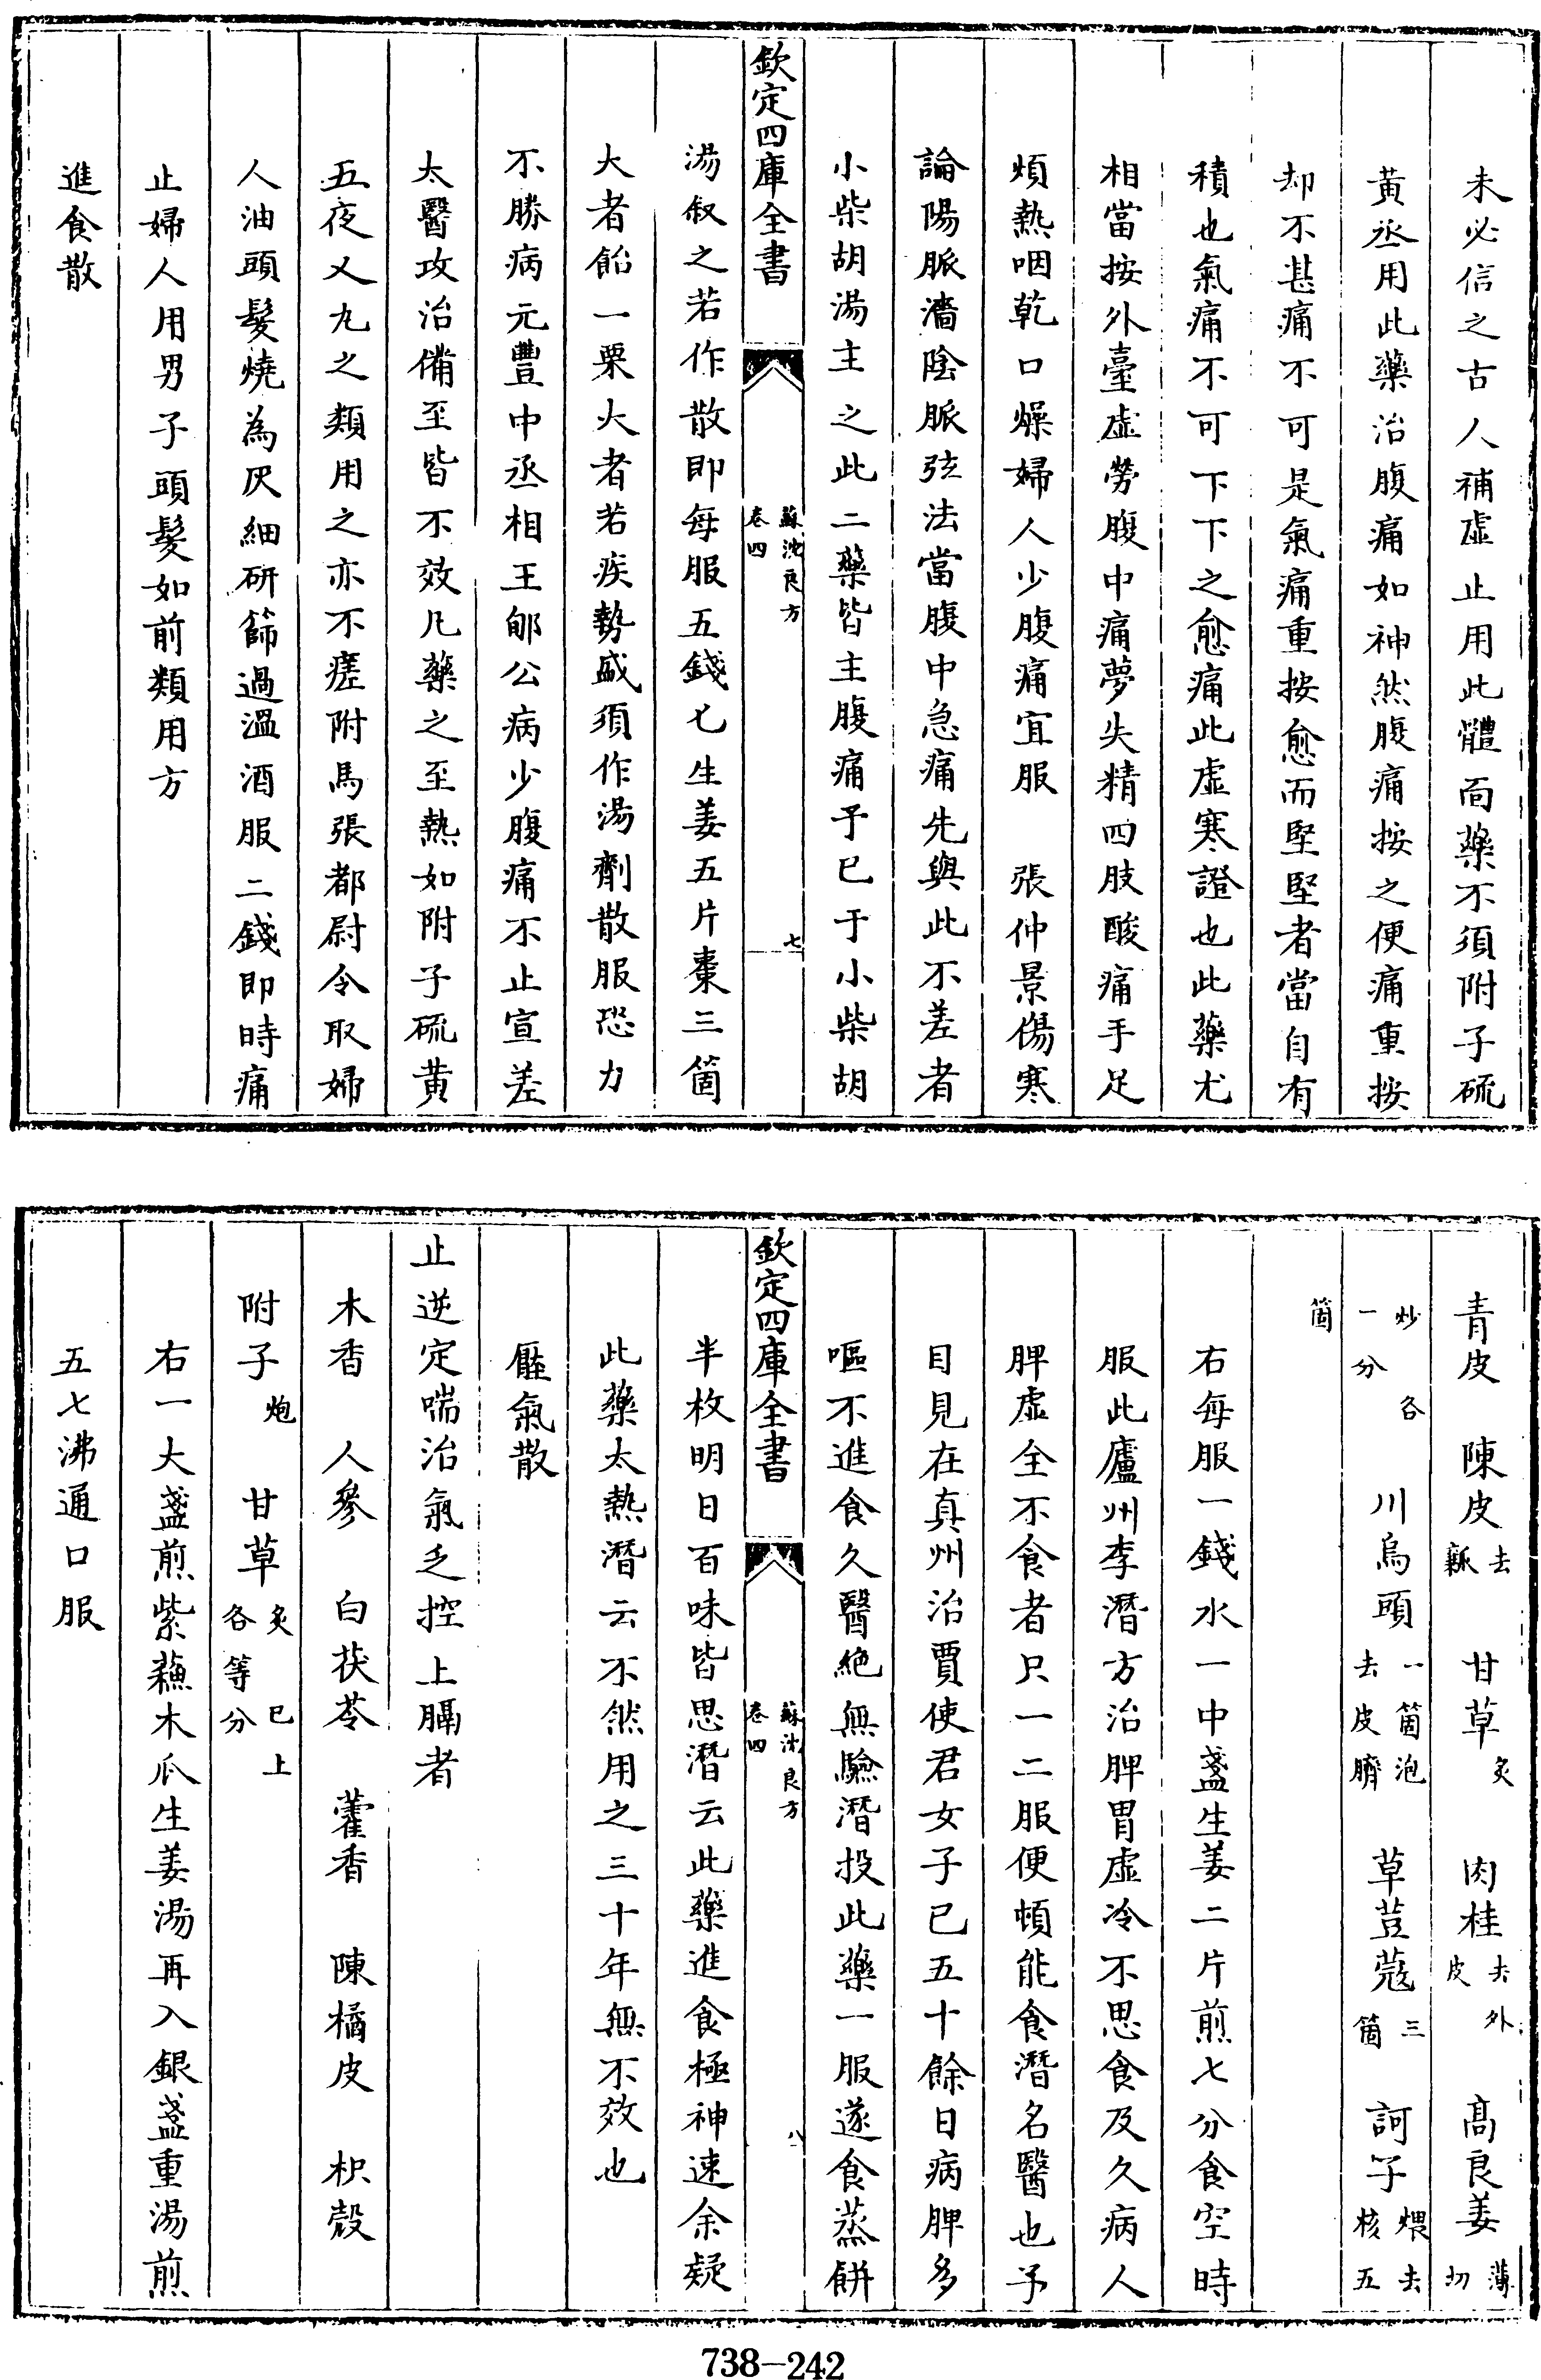 未必信之古人補虛止用此體面藥不須附子硫
黃丞用此藥治腹痛如神然腹痛按之便痛重按
却不甚痛不可是氣痛重按愈而堅堅者當自有
積也氣痛不可下下之愈痛此虛寒證也此藥尤
相當按外臺虛勞腹中痛夢失精四肢酸痛手足
煩熱咽乾口燥婦人少腹痛宜服　張仲景傷寒
論陽脈濇陰脈弦法當腹中急痛先與此不差者
小柴胡湯主之此二藥皆主腹痛予已于小柴胡
欽定四庫全書
蘇沈良方
卷四
七
湯叙之若作散即每服五錢匕生姜五片棗三箇
大者飴一栗大者若疾勢盛須作湯劑散服恐力
不勝病元豐中丞相王郇公病少腹痛不止宣差
太醫攻治備至皆不效凡藥之至熱如附子硫黃
五夜叉丸之類用之亦不瘥附馬張都尉令取婦
人油頭髮燒為灰細研篩過溫酒服二錢即時痛
止婦人用男子頭髮如前類用方
進食散
青皮　陳皮去瓤　甘草炙　肉桂去外皮　高良姜薄切
炒各一分　川烏頭一箇泡去皮臍　草荳蔻三箇　訶子煨去核五
箇
右每服一錢水一中盞生姜二片煎七分食空時
服此廬州李潛方治脾胃虛冷不思食及久病人
脾虛全不食者只一二服便頓能食潛名醫也予
目見在真州治賈使君女子已五十餘日病脾多
嘔不進食久醫絶無驗潛投此藥一服遂食蒸餅
欽定四庫全書
蘇沈良方
卷四
八
半枚明日百味皆思潛云此藥進食極神速余疑
此藥太熱潛云不然用之三十年無不效也
㕓氣散
止逆定喘治氣乏控上膈者
木香　人參　白茯苓　藿香　陳橘皮　枳殼
附子炮　甘草炙已上各等分
右一大盞煎紫蘓木瓜生姜湯再入銀盞重湯煎
五七沸通口服
738-242